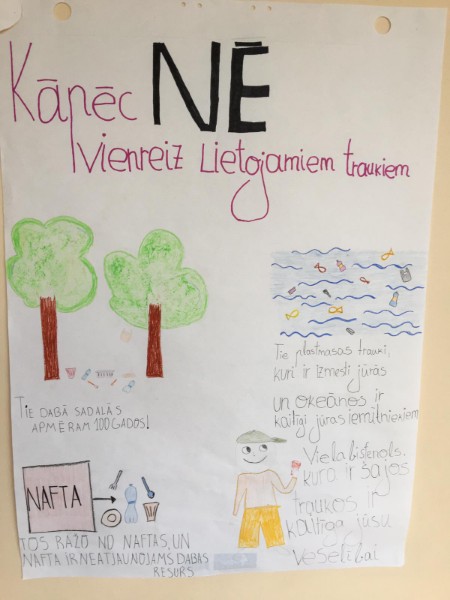 Kāpēc NĒ
Vienreiz Lietojamiem traukiem
TIE DABĀ SADALĀS
APMĒRAM 100 GADOS!
Tie plastmasas trauki,
kuri ir izmesti jūrās
un okeānos ir
kaitīgi jūras iemītniekiem
NAFTA
TOS RAŽO NO NAFTAS, UN
NAFTA IR NEATJAUNOJAMS DABAS
RESURS
Viela bisfenols,
kura ir šajos
traukos ir
kaitīga jūsu
veselībai